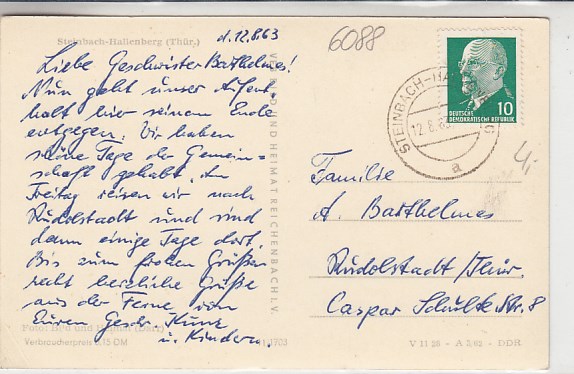 Steinbach-Hallenberg (Thür.)
d. 12.8.63
6088
Liebe Geschwister Barthelmes!
Nun geht unser Aufent-
halt hier seinem Ende
entgegen. Wir haben
schöne Tage der Gemein-
schaft gehabt. Am
Freitag reisen wir nach
Rudolstadt und sind
dann einige Tage dort.
Bis zum frohen Grüßen
recht herzliche Grüße
aus der Ferne von
Euren Geschw. Kunz
u. Kindern.
Verbraucherpreis 0,15 DM
BILD UND HEIMAT REICHENBACH I. V.
STEINBACH-HA
12.8.63
a
10
DEUTSCHE
DEMOKRATISCHE REPUBLIK
4,-
Familie
A. Barthelmes
Rudolstadt/Thür.
Caspar Schulte Str. 8
V 11 28 - A 3/62 - DDR